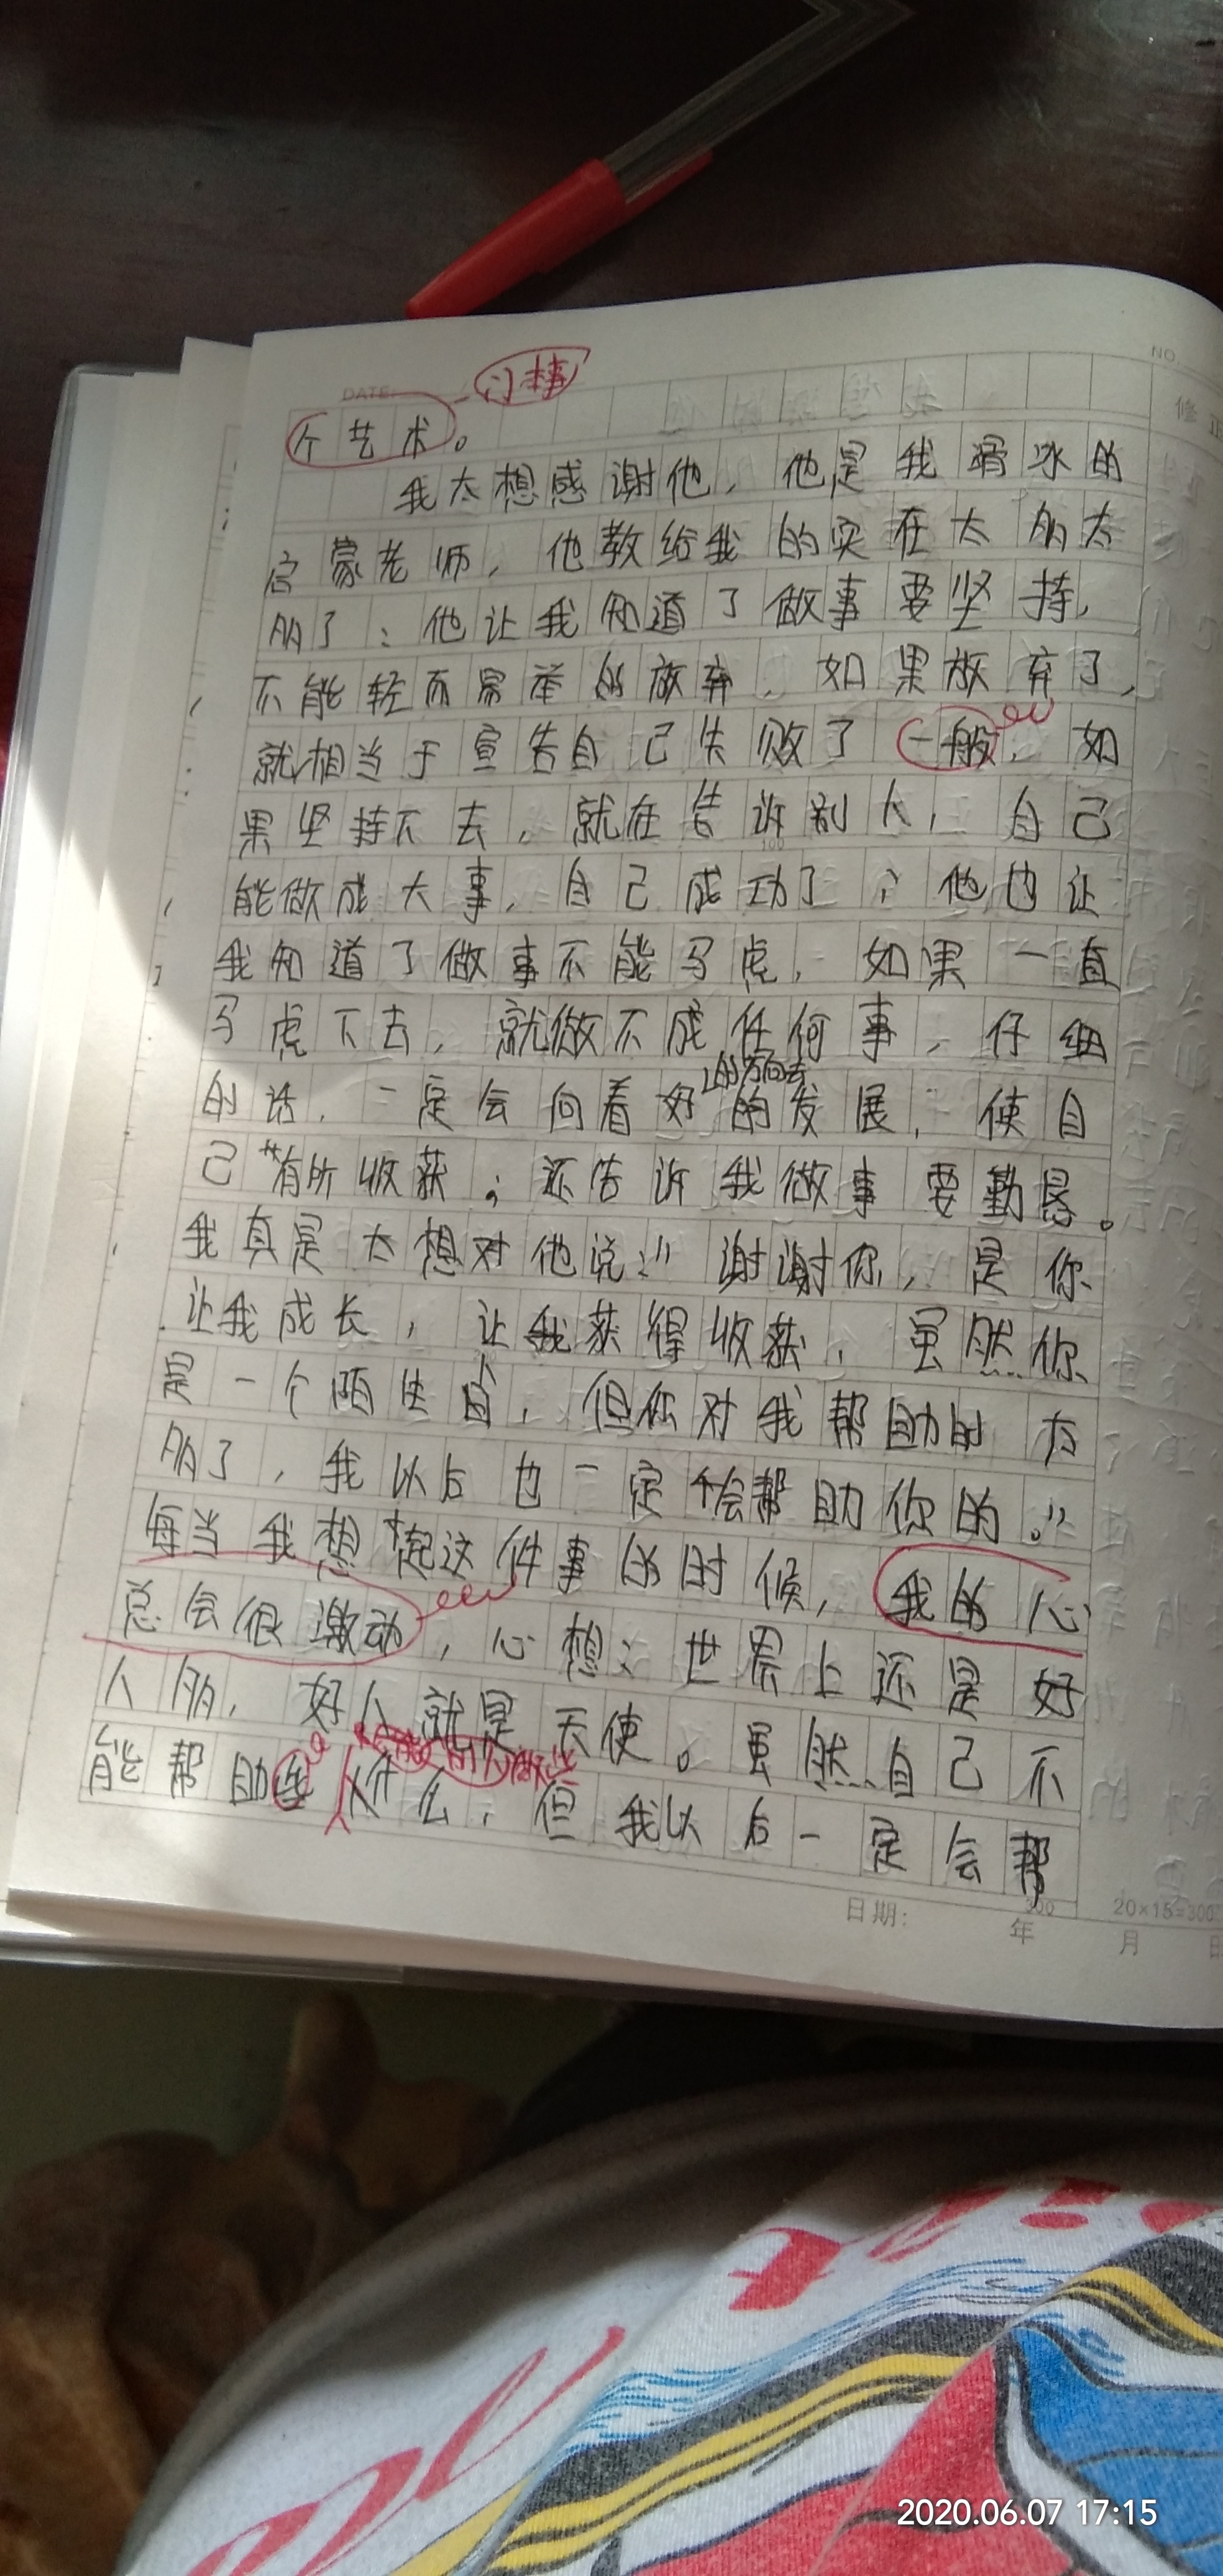 NO.
DATE:
修正
门本事
个艺术。
我太想感谢他,他是我滑冰的
启蒙老师,他教给我的实在太多太
多了:他让我知道了做事要坚持,
不能轻而易举的放弃,如果放弃了,
就相当于宣告自己失败了一般,如
果坚持下去,就在告诉别人,自己
能做成大事,自己成功了;他也让
我知道了做事不能马虎,如果一直
马虎下去,就做不成任何事,仔细
的方向去
的话,一定会向着好的发展,使自
己有所收获;还告诉我做事要勤恳。
我真是太想对他说:“谢谢你,是你
让我成长,让我获得收获,虽然你
是一个陌生人,但你对我帮助的太
多了,我以后也一定会帮助你的。”
每当我想起这件事的时候,我的心
总会很激动,心想:世界上还是好
人多,好人就是天使。虽然自己不
能帮助什么,但我以后一定会帮
300
20×15=300
日期: 年 月 日
2020.06.07 17:15